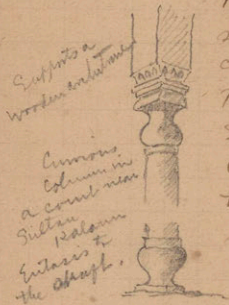 Supports a
wooden architrave
Curious
Column in
a court near
Sultan
Kalaun
Entasis to
the shaft.